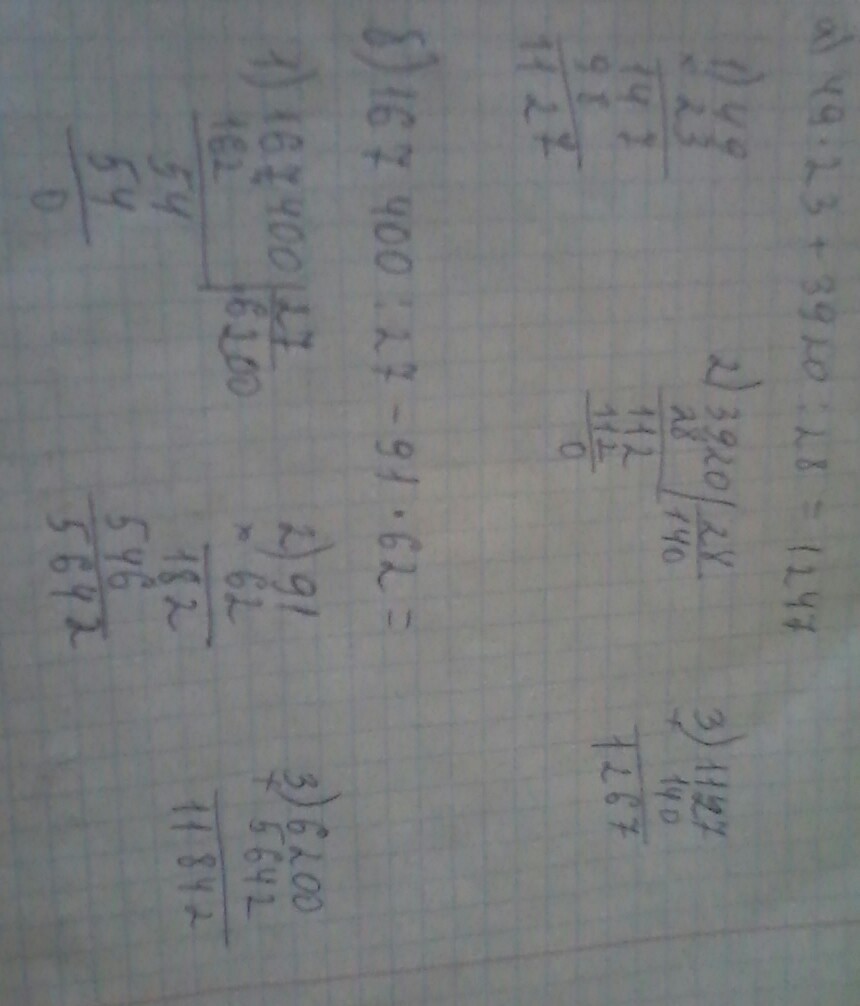 а) 49·23 + 3920 : 28 = 1247
1) 49
× 23
147
98
1127
2) 3920 | 28
28 140
112
112
0
3) 1127
+ 140
1267
б) 167 400 : 27 - 91·62 =
1) 167400 | 27
162 6200
54
54
0
2) 91
× 62
182
546
5642
3) 6200
+ 5642
11842